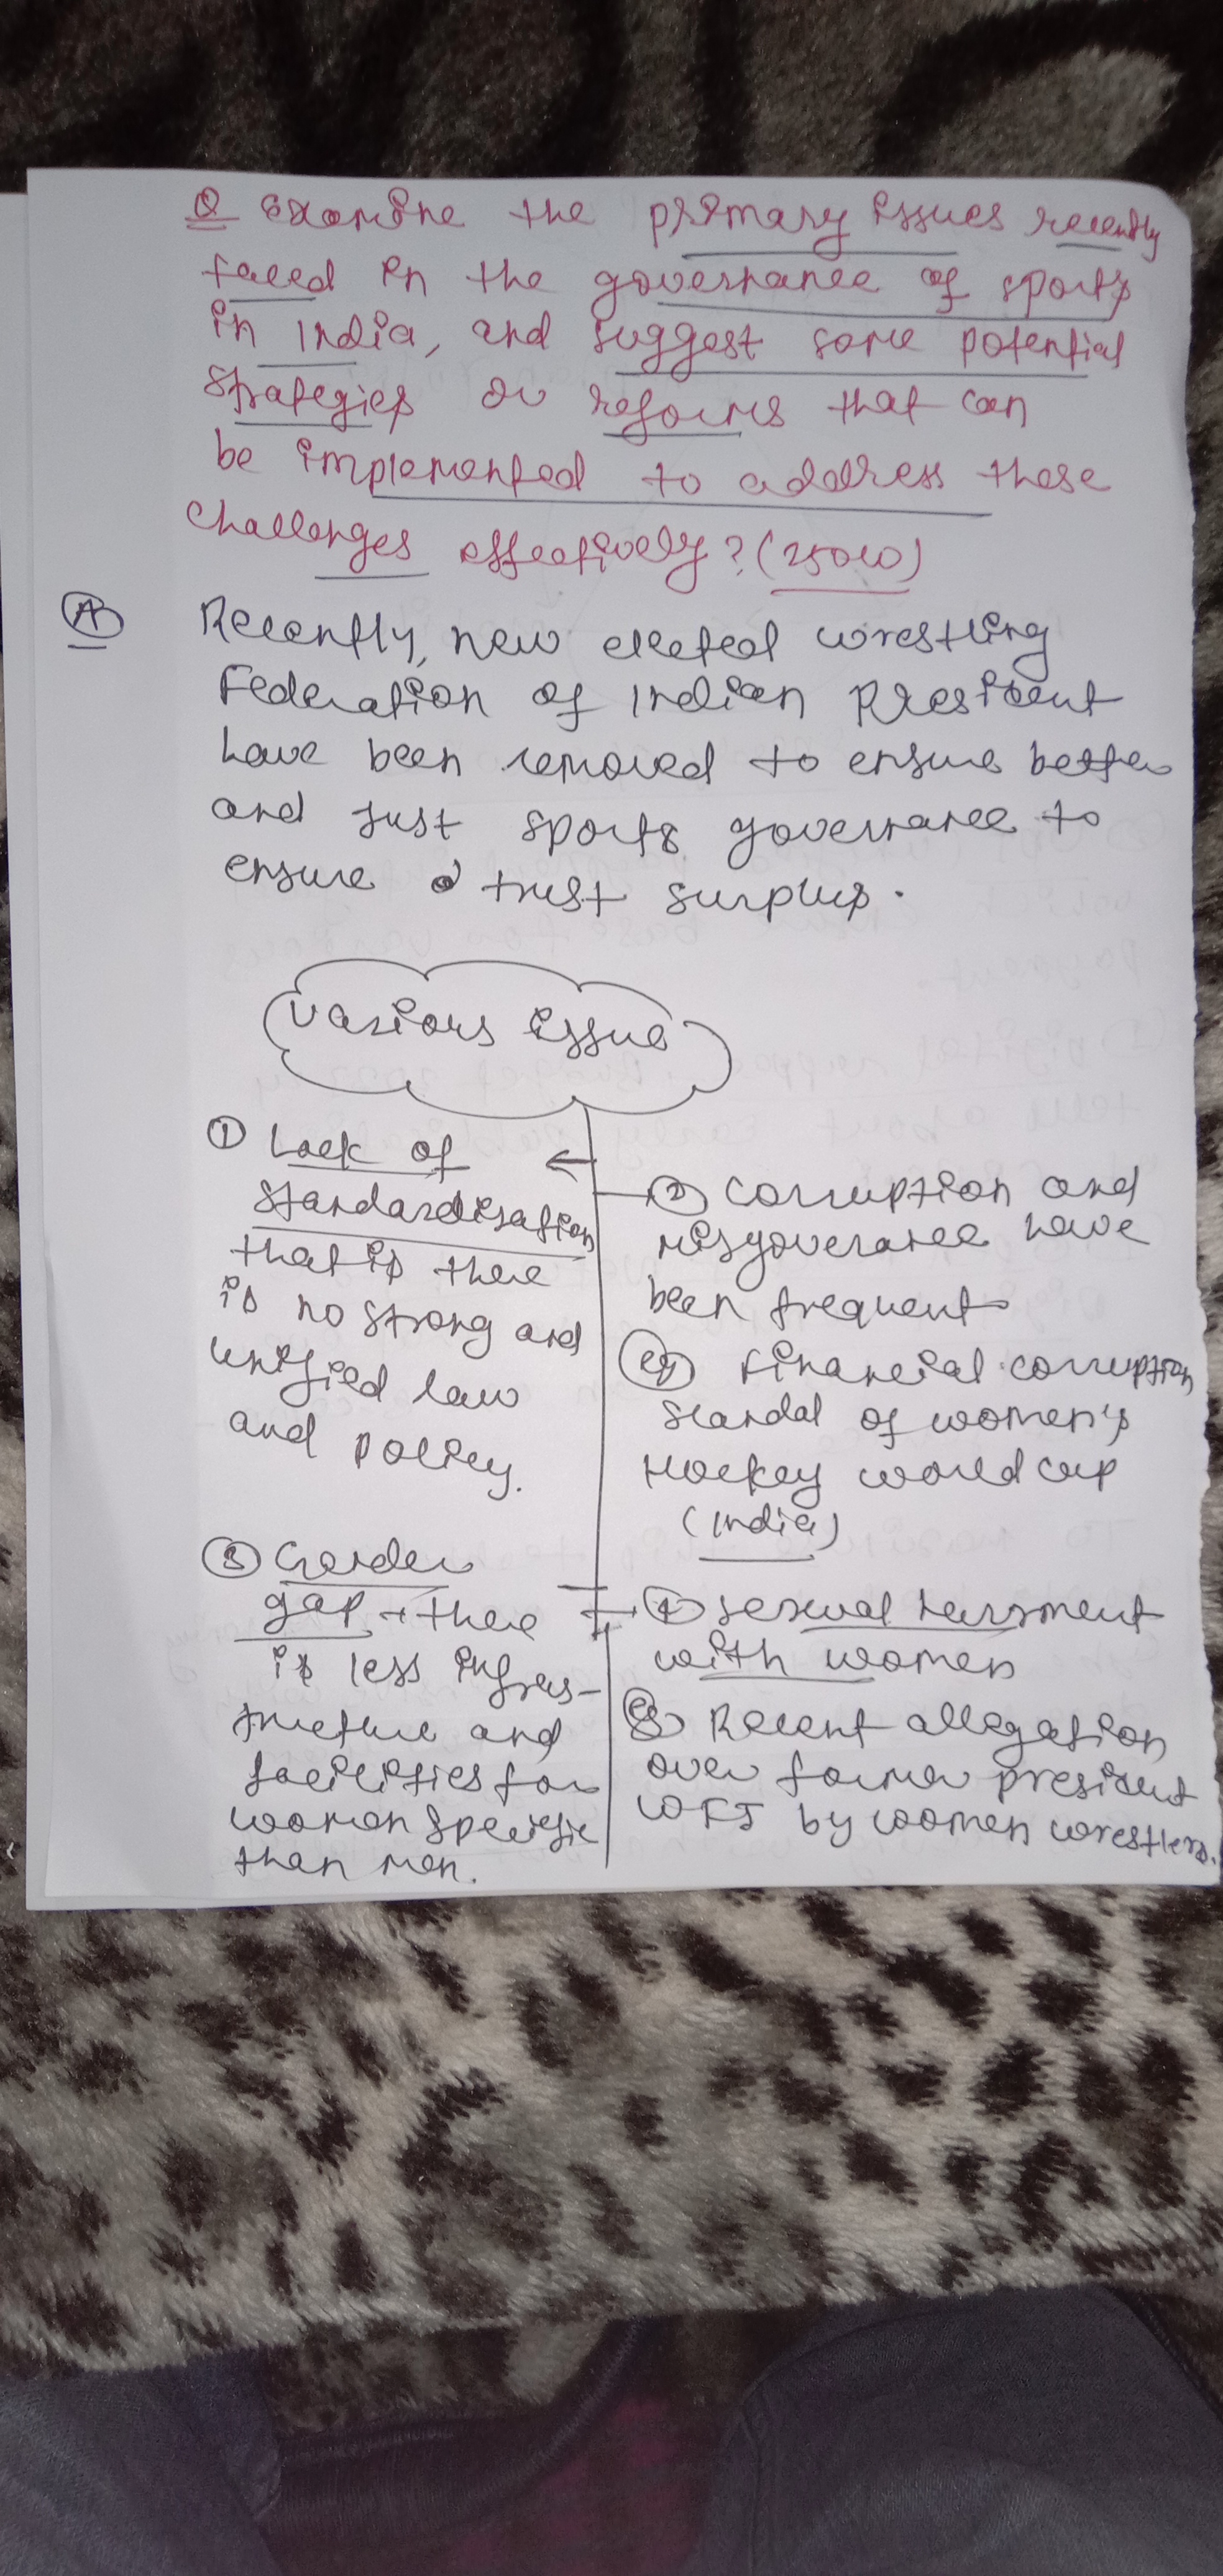 Q Examine the primary issues recently
faced in the governance of sports
in India, and suggest some potential
strategies or reforms that can
be implemented to address these
challenges effectively? (250w)
A Recently, new elected wrestling
Federation of Indian President
have been removed to ensure better
and just sports governance to
ensure trust surplus.
Various issue
① Lack of
standardisation
that is there
is no strong and
unified law
and policy.
② Corruption and
misgovernance have
been frequent
eg Financial corruption
scandal of women's
Hockey world cup
(India)
③ Gender
gap → there
is less infras-
tructure and
facilities for
women specific
than men.
④ sexual harrsment
with women
eg Recent allegation
over former president
WFI by women wrestlers.